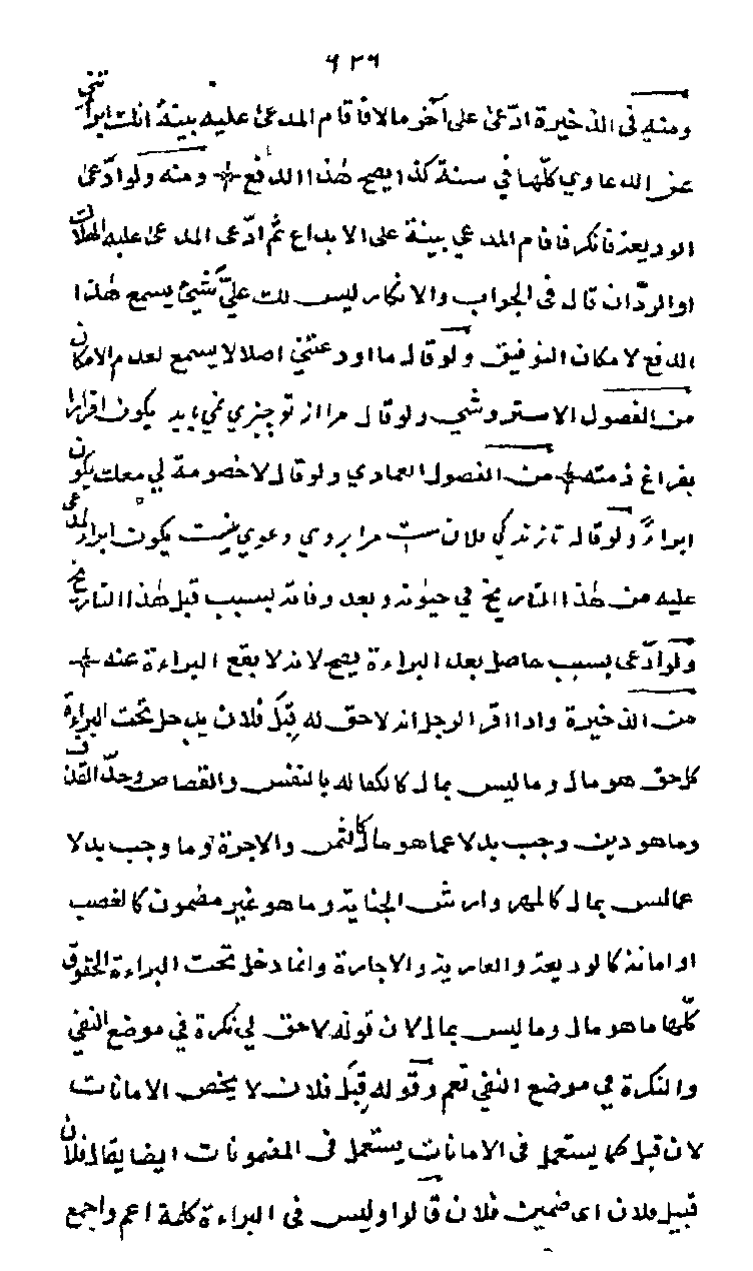 ٩٢٩
ومنه في الذخيرة ادّعى على آخر مالا فاقام المدعى عليه بينة انك ابرأتني
عن الدعاوي كلّها في سنة كذا يصح هذا الدفع ومنه ولو ادّعى
الوديعة فانكر فاقام المدعي بينة على الايداع ثم ادّعى المدعى عليه الهلاك
او الردّ ان قال في الجواب والانكار ليس لك عليّ شيئ يسمع هذا
الدفع لامكان التوفيق ولو قال ما اودعتني اصلا لا يسمع لعدم الامكان
من الفصول الاستروشني ولو قال مرا از تو چيزي نمي بايد يكون اقرارا
بفراغ ذمته من الفصول العمادي ولو قال لا خصومة لي معك يكون
ابراءً ولو قال تا زندكي فلان ست مرا بروي دعوي نيست يكون ابراء للمدعى
عليه من هذا التاريخ في حيوته وبعد وفاته بسبب قبل هذا التاريخ
ولو ادّعى بسبب حاصل بعد البراءة يصح لانه لا يقع البراءة عنه
من الذخيرة واذا اقر الرجل انه لا حق له قِبَل فلان يدخل تحت البراءة
كل حق هو مال وما ليس بمال كالكفالة بالنفس والقصاص وحدّ القذف
وما هو دين وجب بدلا عما هو مال كالثمن والاجرة وما وجب بدلا
عما ليس بمال كالمهر وارش الجناية وما هو غير مضمون كالغصب
او امانة كالوديعة والعارية والاجارة وانما دخل تحت البراءة الحقوق
كلّها ما هو مال وما ليس بمال لان قوله لا حق لي نكرة في موضع النفي
والنكرة في موضع النفي تعم وقوله قِبَل فلان لا يخص الامانات
لان قبل كما يستعمل في الامانات يستعمل في المضمونات ايضا يقال فلان
قبيل فلان اى ضمين فلان قالوا وليس في البراءة كلمة اعم واجمع